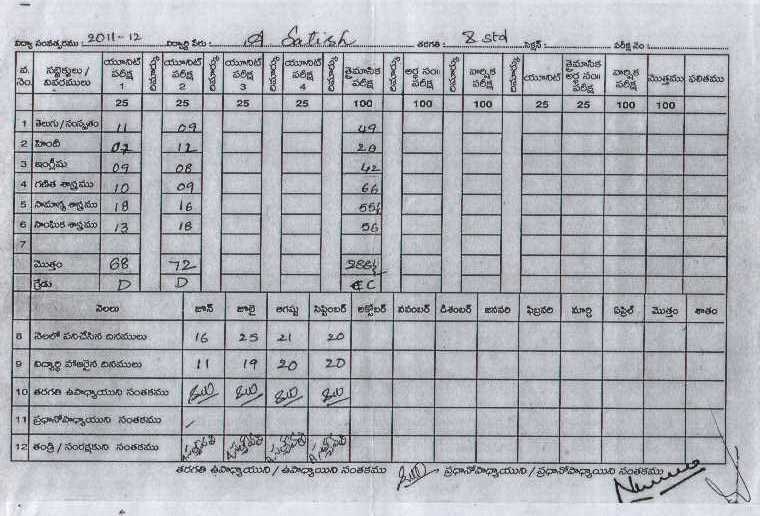 విద్యా సంవత్సరము : 2011-12 విద్యార్థి పేరు : A Satish తరగతి : 8 std సెక్షన్ : పరీక్ష నెం :
వ. నెం. సబ్జెక్టులు / వివరములు యూనిట్ పరీక్ష 1 యూనిట్ పరీక్ష 2 యూనిట్ పరీక్ష 3 యూనిట్ పరీక్ష 4 త్రైమాసిక పరీక్ష అర్ధ సం॥ పరీక్ష వార్షిక పరీక్ష యూనిట్ త్రైమాసిక అర్ధ సం॥ పరీక్ష వార్షిక పరీక్ష మొత్తము ఫలితము
25 25 25 25 100 100 100 25 25 100 100
1 తెలుగు/సంస్కృతం 11 09 49
2 హిందీ 07 12 20
3 ఇంగ్లీషు 09 08 42
4 గణిత శాస్త్రము 10 09 66
5 సామాన్య శాస్త్రము 18 16
6 సాంఘిక శాస్త్రము 13 18 56
7
మొత్తం 68 72
గ్రేడు D D C
నెలలు జూన్ జూలై ఆగష్టు సెప్టెంబర్ అక్టోబర్ నవంబర్ డిశంబర్ జనవరి ఫిబ్రవరి మార్చి ఏప్రిల్ మొత్తం శాతం
8 నెలలో పనిచేసిన దినములు 16 25 21 20
9 విద్యార్థి హాజరైన దినములు 11 19 20 20
10 తరగతి ఉపాధ్యాయుని సంతకము
11 ప్రధానోపాధ్యాయుని సంతకము
12 తండ్రి / సంరక్షకుని సంతకము
తరగతి ఉపాధ్యాయుని / ఉపాధ్యాయిని సంతకము ప్రధానోపాధ్యాయుని / ప్రధానోపాధ్యాయిని సంతకము